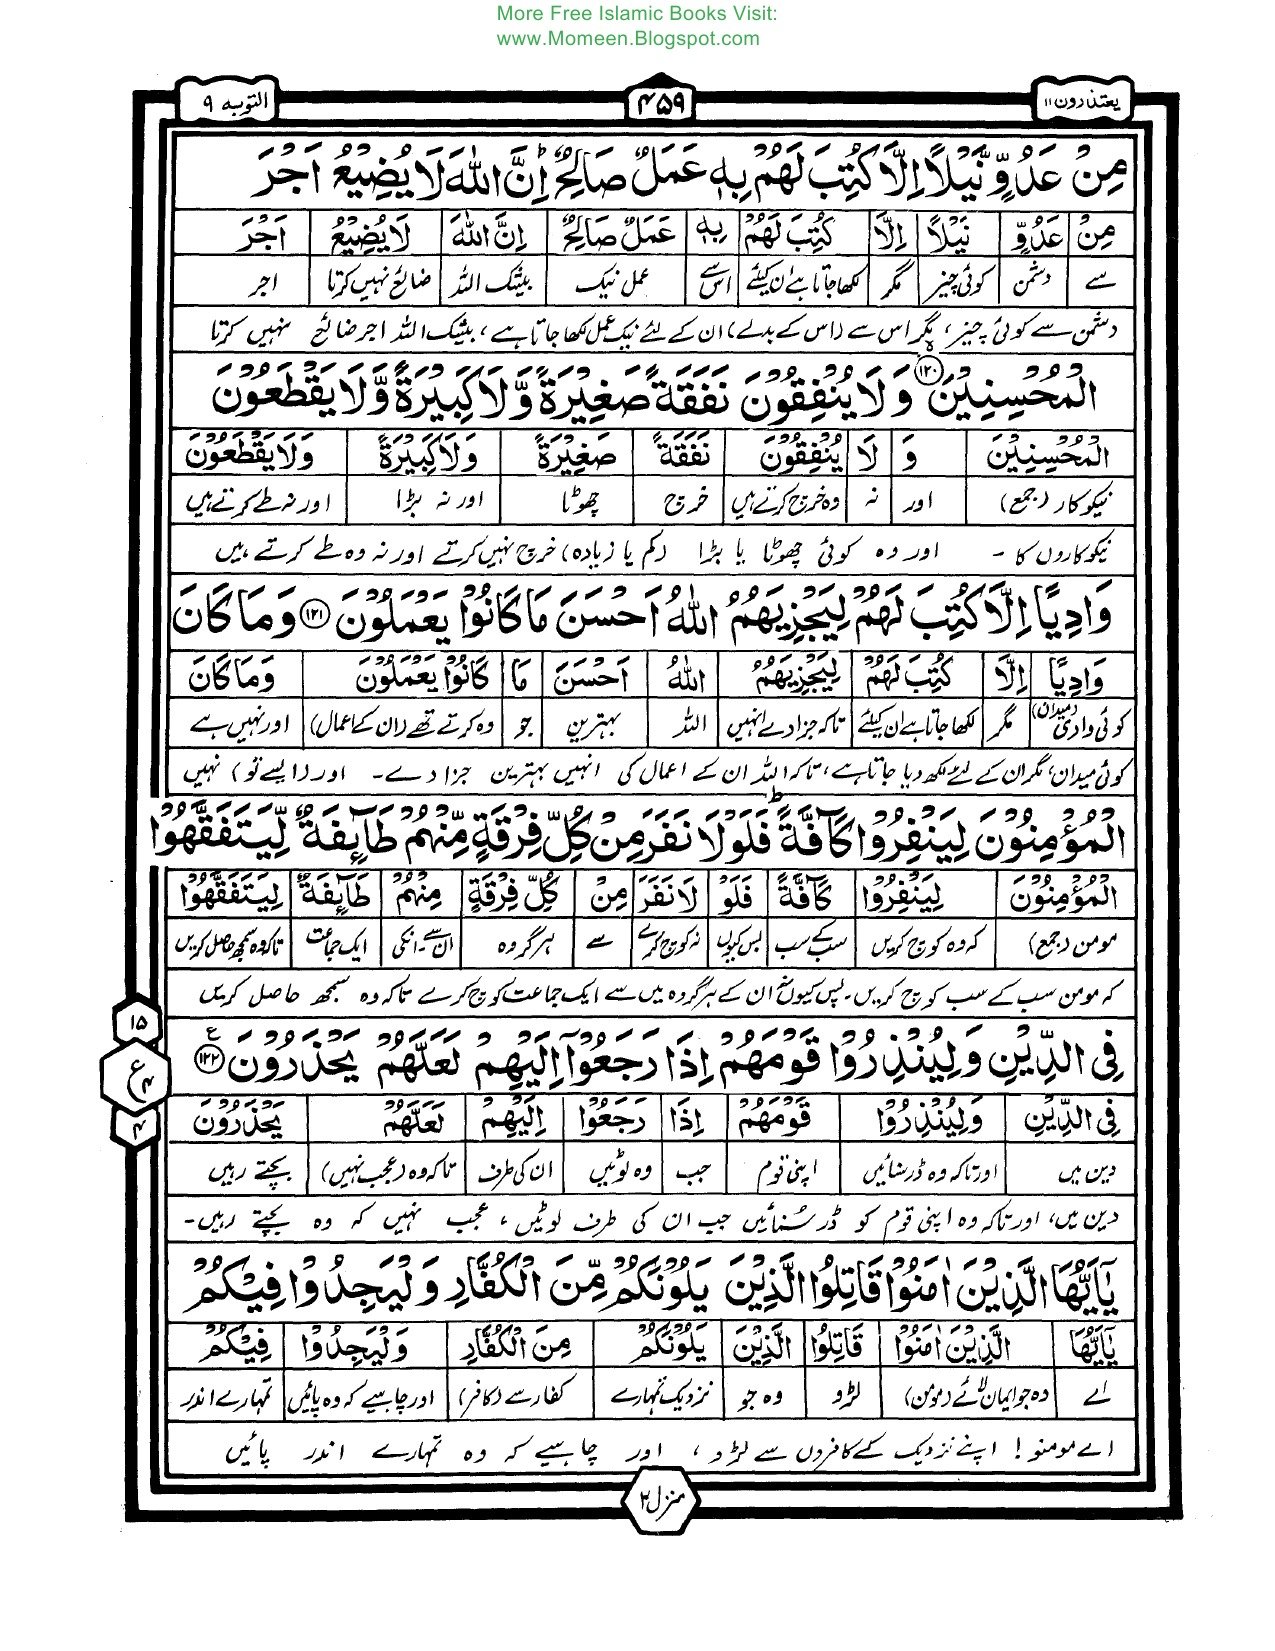 More Free Islamic Books Visit:
www.Momeen.Blogspot.com
یعتذرون ۱۱ ۴۵۹ التوبہ ۹
مِنْ عَدُوٍّ نَّيْلًا اِلَّا كُتِبَ لَهُمْ بِهٖ عَمَلٌ صَالِحٌ ؕ اِنَّ اللّٰهَ لَا يُضِيْعُ اَجْرَ
مِنْ عَدُوٍّ نَيْلًا اِلَّا كُتِبَ لَهُمْ بِهٖ عَمَلٌ صَالِحٌ اِنَّ اللّٰهَ لَا يُضِيْعُ اَجْرَ
سے دشمن کوئی چیز مگر لکھا جاتا ہے ان کیلئے اس سے عمل نیک بیشک اللہ ضائع نہیں کرتا اجر
دشمن سے کوئی چیز، مگر اس سے (اس کے بدلے) ان کے لئے نیک عمل لکھا جاتا ہے، بیشک اللہ اجر ضائع نہیں کرتا
الْمُحْسِنِيْنَ ۱۲۰ وَلَا يُنْفِقُوْنَ نَفَقَةً صَغِيْرَةً وَّلَا كَبِيْرَةً وَّلَا يَقْطَعُوْنَ
الْمُحْسِنِيْنَ وَ لَا يُنْفِقُوْنَ نَفَقَةً صَغِيْرَةً وَلَا كَبِيْرَةً وَلَا يَقْطَعُوْنَ
نیکوکار (جمع) اور نہ وہ خرچ کرتے ہیں خرچ چھوٹا اور نہ بڑا اور نہ طے کرتے ہیں
نیکوکاروں کا - اور وہ کوئی چھوٹا یا بڑا (کم یا زیادہ) خرچ نہیں کرتے اور نہ وہ طے کرتے ہیں
وَادِيًا اِلَّا كُتِبَ لَهُمْ لِيَجْزِيَهُمُ اللّٰهُ اَحْسَنَ مَا كَانُوْا يَعْمَلُوْنَ ۱۲۱ وَمَا كَانَ
وَادِيًا اِلَّا كُتِبَ لَهُمْ لِيَجْزِيَهُمْ اللّٰهُ اَحْسَنَ مَا كَانُوْا يَعْمَلُوْنَ وَمَا كَانَ
کوئی وادی (میدان) مگر لکھا جاتا ہے ان کیلئے تاکہ جزا دے انہیں اللہ بہترین جو وہ کرتے تھے (ان کے اعمال) اور نہیں ہے
کوئی میدان، مگر ان کے لئے لکھ دیا جاتا ہے، تاکہ اللہ ان کے اعمال کی انہیں بہترین جزا دے۔ اور (ایسے تو) نہیں
الْمُؤْمِنُوْنَ لِيَنْفِرُوْا كَآفَّةً ؕ فَلَوْلَا نَفَرَ مِنْ كُلِّ فِرْقَةٍ مِّنْهُمْ طَآىِٕفَةٌ لِّيَتَفَقَّهُوْا
الْمُؤْمِنُوْنَ لِيَنْفِرُوْا كَآفَّةً فَلَوْ لَا نَفَرَ مِنْ كُلِّ فِرْقَةٍ مِنْهُمْ طَآىِٕفَةٌ لِيَتَفَقَّهُوْا
مومن (جمع) کہ وہ کوچ کریں سب کے سب بس کیوں نہ کوچ کرے سے ہر گروہ ان سے - انکی ایک جماعت تاکہ وہ سمجھ حاصل کریں
کہ مومن سب کے سب کوچ کریں۔ پس کیوں نہ ان کے ہر گروہ میں سے ایک جماعت کوچ کرے تاکہ وہ سمجھ حاصل کریں
۱۵
ع ۴
۴
فِي الدِّيْنِ وَلِيُنْذِرُوْا قَوْمَهُمْ اِذَا رَجَعُوْٓا اِلَيْهِمْ لَعَلَّهُمْ يَحْذَرُوْنَ ۱۲۲ ع
فِي الدِّيْنِ وَلِيُنْذِرُوْا قَوْمَهُمْ اِذَا رَجَعُوْا اِلَيْهِمْ لَعَلَّهُمْ يَحْذَرُوْنَ
دین میں اور تاکہ وہ ڈر سنائیں اپنی قوم جب وہ لوٹیں ان کی طرف تاکہ وہ (عجب نہیں) بچتے رہیں
دین میں، اور تاکہ وہ اپنی قوم کو ڈر سُنائیں جب ان کی طرف لوٹیں، عجب نہیں کہ وہ بچتے رہیں۔
يٰٓاَيُّهَا الَّذِيْنَ اٰمَنُوْا قَاتِلُوا الَّذِيْنَ يَلُوْنَكُمْ مِّنَ الْكُفَّارِ وَلْيَجِدُوْا فِيْكُمْ
يٰٓاَيُّهَا الَّذِيْنَ اٰمَنُوْا قَاتِلُوا الَّذِيْنَ يَلُوْنَكُمْ مِنَ الْكُفَّارِ وَلْيَجِدُوْا فِيْكُمْ
اے وہ جو ایمان لائے (مومن) لڑو وہ جو نزدیک تمہارے کفار سے (کافر) اور چاہیے کہ وہ پائیں تمہارے اندر
اے مومنو! اپنے نزدیک کے کافروں سے لڑو، اور چاہیے کہ وہ تمہارے اندر پائیں
منزل ۲